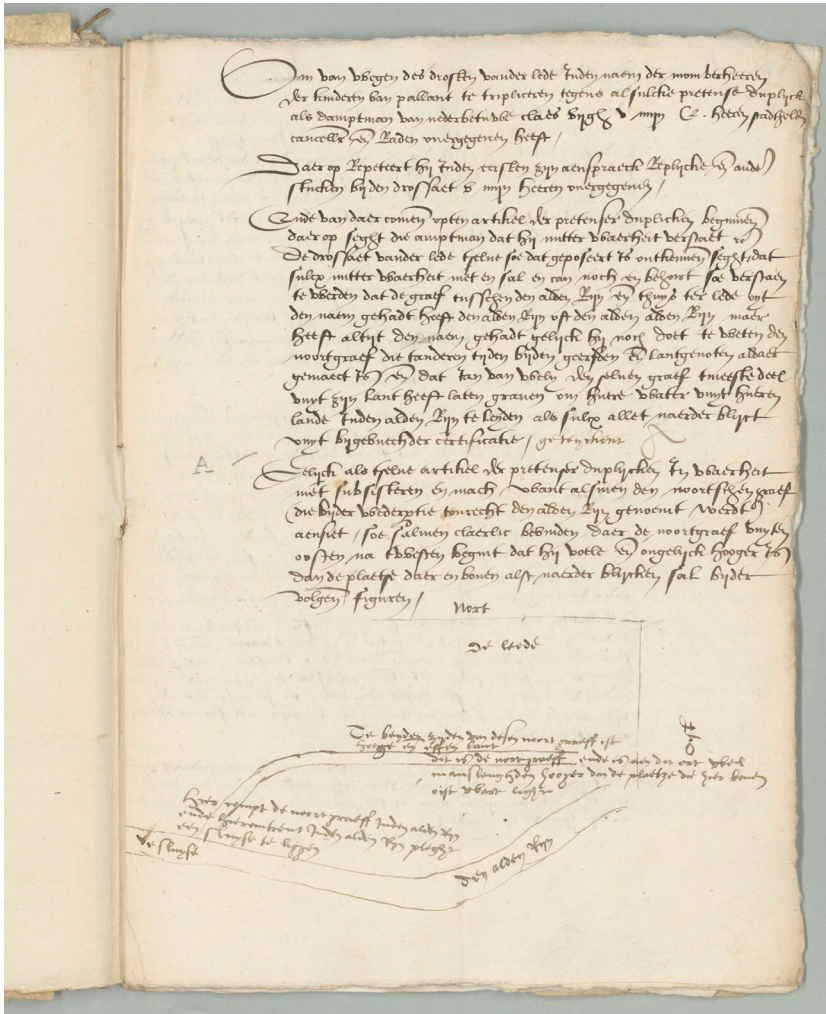 Om van wegen des drosten vander lede Inden naem der momberheeren
der kinderen van pallant te tripliceren tegens alsulcke pretense duplyck
als damptman van nederbetuwe claes vijgh v mijn E. heeren stadhelder
cancell en Raden overgegeven heeft /
Daer op Repeteert hij Inden eersten zijn aenspraeck Replijcke en ander
stucken bij den drossaet v mijn heeren overgegeven /
Ende van daer comen opten artikel der pretenser duplicken beginnen
daer op seght die amptman dat hij mitter waerheit verstaet
De drossaet vander lede tselve soe dat geposeert is ontkennen seght dat
sulcx mitter waerheit niet en sal en can noch en behoirt soe verstaen
te werden dat de graef tusschen den alden Rijn en thuys ter lede oyt
den naem gehadt heeft den alden Rijn oft den alden alden Rijn maer
heeft altijt den naem gehadt gelijck hij noch doet te weten den
noortgraef die tanderen tijden bijden geerfden en lantgenoten aldaer
gemaect is en dat Jan van den selven graef tmeeste deel
uuyt zijn lant heeft laten graven om huere water uuyt hueren
lande Inden alden Rijn te leyden als sulcx allet naerder blijct
uuyt bijgevuechder certificatie / geteyckent A
A
Gelijck als tselve artikel der pretenser duplijcken In waerheit
niet subsisteren en mach want alsmen den noortschen graef
die bijder wederptie tonrecht den alden Rijn genoemt werdt
aensiet / soe salmen claerlic bevinden daer de noortgraef uuyten
oosten na twesten begint dat hij voele en ongelijck hooger is
dan de plaetse daer en boven alst naerder blijcken sal bijder
volgen figuren /
Nort
De leede
Te beyden zyden van desen noort graeff ist
hooge en effen lant
dit is de noortgraeff ende is aen dit ort
manslengden hooger dan de plaetze die hier boven
oist waert light
Hier compt de noort graeff Inden alden Ryn
ende hieromtrent Inden alden Ryn pleght
een sluyse te liggen
De sluyse
Den alden Ryn